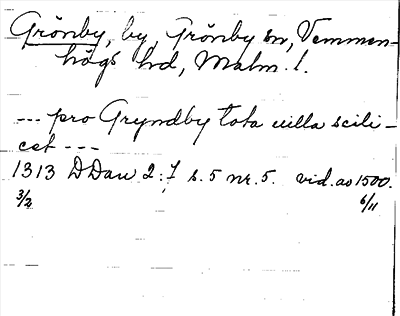 Grönby, by, Grönby sn, Vemmen-
högs hd, Malm. l.
--- pro Gryndby tota uilla scili-
cet ---
1313 DDan 2:7 s. 5 nr. 5. vid. av 1500.
3/2 6/11